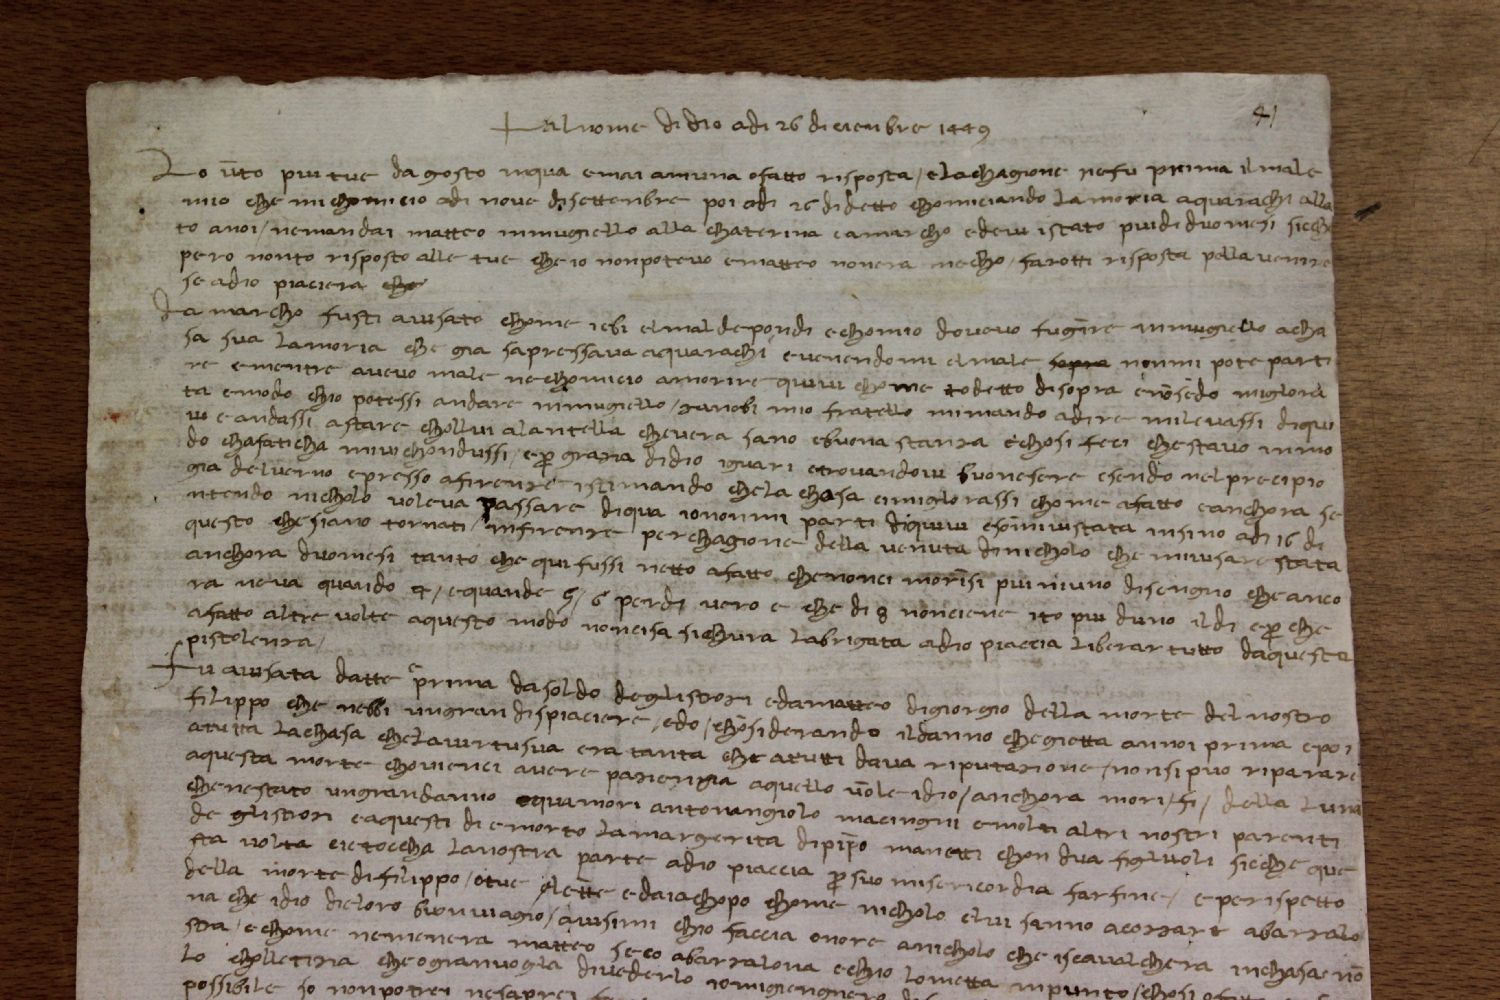 41
Al nome di dio adi 26 di dicenbre 1449
Lo ūto piu tue da gosto inqua e mai a niuna o fatto risposta / e la chagione ne fu prima il male
mio che mi chomincio adi nove di settenbre poi adi 26 di detto chominciando la moria a quarachi alla
to a noi / ne mandai matteo in mugiello alla chaterina e a marcho e de vi istato piu di duo mesi siche
pero non to risposto alle tue che io non potevo e matteo non era mecho / farotti risposta pella venire
se a dio piaciera
Da marcho fusti avisato chome i ebi el mal de pondi e chom io dovevo fugire in mugiello a cha
sa sua la moria che gia sapressava a quarachi e venendomi el male non mi pote parti
re e mentre avevo male ne chomincio a morire quivi chome to detto di sopra e nō sēdo migliora
ta e modo chio potessi andare in mugiello / zanobi mio fratello mi mando a dire mi levassi di qui
vi e andassi a stare chollui a lantella che vera sano e buona stanza e chosi feci che stavo in mo
do cha faticha mivi chondussi / e p grazia di dio i guari e trovandovi buon esere e sendo nel precipio
gia del verno e presso a firenze istimando che la chosa ci migliorassi chome a fatto e anchora se
ntendo nicholo voleva passare di qua io non mi parti di quivi e sōmivi stata insino adi 16 di
questo che siano tornati in firenze per chagione della venuta di nicholo che mi vi sare stata
anchora duo mesi tanto che qui fussi netto afatto che non ci morisi piu niuno di sengnio che anco
ra ne va quando 4 / e quande 5 / 6 per di vero e che di 8 non ciene ito piu duno il di e p che
a fatto altre volte a questo modo non ci sa sichura la brigata a dio piaccia liberar tutto da questa
pistolenza /
Fu avisata da tte prima da soldo degli strozi e da matteo di giorgio della morte del nostro
filippo che nebbi un gran dispiaciere / e do / chōsiderando il danno che gietta a nnoi prima e poi
a tutta la chasa che la virtu sua era tanta che a tutti dava riputazione / non si puo riparare
a questa morte chonvienci avere pazienzia a quello vole idio / anchora mori / fi / della luna
che ne stato un gran danno e qua mori antonangiolo macingni e molti altri nostri parenti
de gli strozi e a questi di e morto la margerita di pipo manetti chon dua figliuoli siche que
sta volta cie toccha la nostra parte a dio piaccia p suo misericordia far fine / e per ispetto
della morte di filippo / o tue lette e da iachopo chome nicholo e lui sanno a cozzar a barzalo
na che idio die loro buon viagio / avisimi chio faccia onore a nicholo che iscavalchera in chasa no
stra / e chome ne menera matteo seco a barzalona e chio lo metta in punto / chosi o fatto
lo cholletizia che o gran voglia di vederlo
possibile so non potrei ne saprei